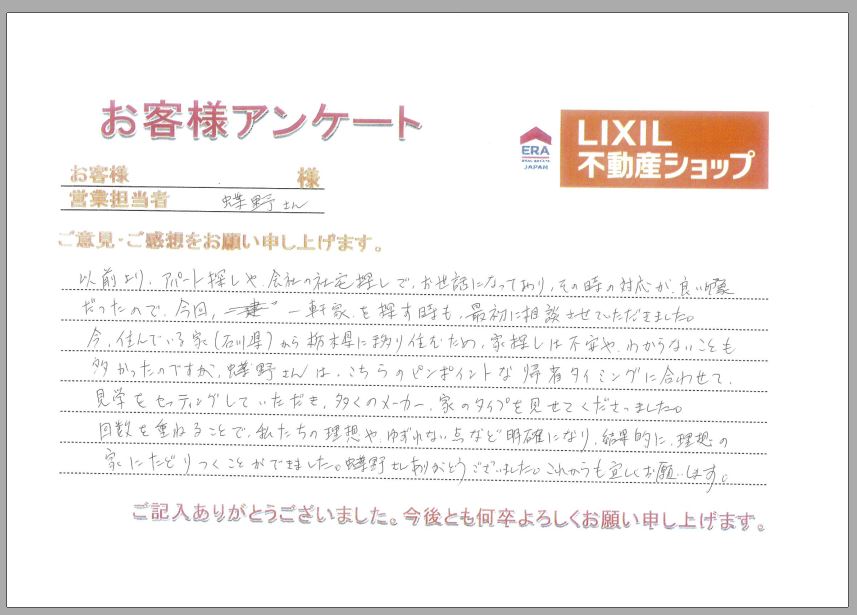 お客様アンケート
ERA
REAL ESTATE
JAPAN
LIXIL
不動産ショップ
お客様 様
営業担当者 蝶野さん
ご意見・ご感想をお願い申し上げます。
以前より、アパート探しや、会社の社宅探しで、お世話になっており、その時の対応が、良い印象
だったので、今回、一軒家を探す時も、最初に相談させていただきました。
今、住んでいる家(石川県)から栃木県に移り住むため、家探しは不安や、わからないことも
多かったのですが、蝶野さんは、こちらのピンポイントな帰省タイミングに合わせて、
見学をセッティングしていただき、多くのメーカー、家のタイプを見せてくださいました。
回数を重ねることで、私たちの理想や、ゆずれない点など明確になり、結果的に、理想の
家にたどりつくことができました。蝶野さんありがとうございました。これからも宜しくお願いします。
ご記入ありがとうございました。今後とも何卒よろしくお願い申し上げます。